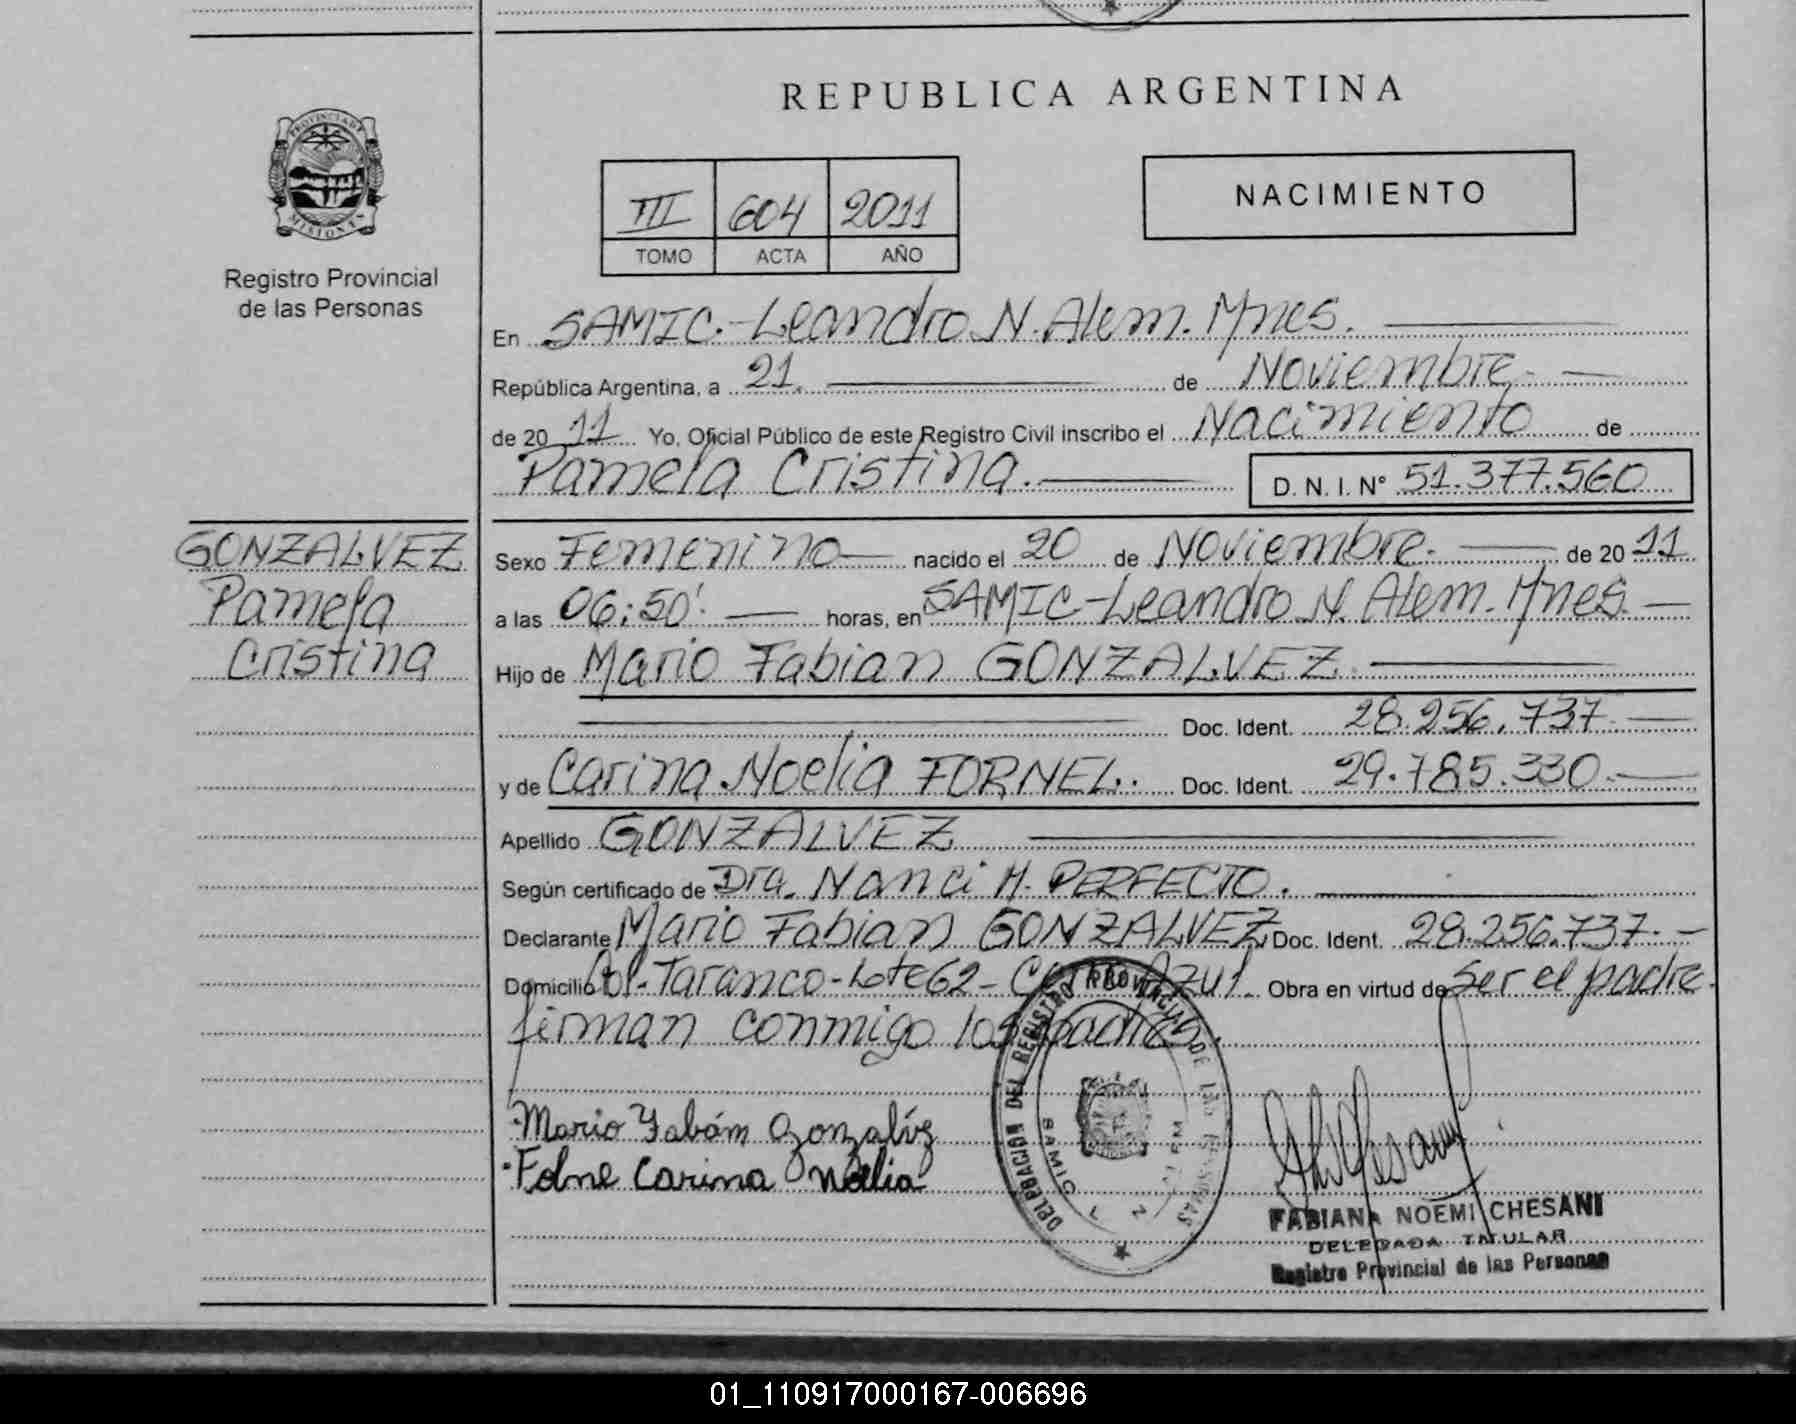 REPUBLICA ARGENTINA
PROVINCIA DE
MISIONES
Registro Provincial
de las Personas
III 604 2011
TOMO ACTA AÑO
NACIMIENTO
En SAMIC.-Leandro N. Alem. Mnes.
República Argentina, a 21. de Noviembre
de 20 11 Yo, Oficial Público de este Registro Civil inscribo el Nacimiento de
Pamela Cristina. D. N. I. N° 51.377.560
GONZALVEZ
Pamela
Cristina
Sexo Femenino nacido el 20 de Noviembre. de 20 11
a las 06:50'. horas, en SAMIC-Leandro N. Alem. Mnes.
Hijo de Mario Fabian GONZALVEZ.
Doc. Ident. 28.256.737.
y de Carina Noelia FORNEL. Doc. Ident. 29.785.330.
Apellido GONZALVEZ
Según certificado de Dra. Nanci H. PERFECTO.
Declarante Mario Fabian GONZALVEZ Doc. Ident. 28.256.737.
Domicilio Col. Taranco-Lote 62- Cerro Azul. Obra en virtud de ser el padre.
firman conmigo los padres.
Mario Fabám Gonzalvez
Folne Carina Noelia
DELEGACION DEL REGISTRO PROVINCIAL DE LAS PERSONAS
SAMIC L N ALEM
FABIANA NOEMI CHESANI
DELEGADA TITULAR
Registro Provincial de las Personas
01_110917000167-006696